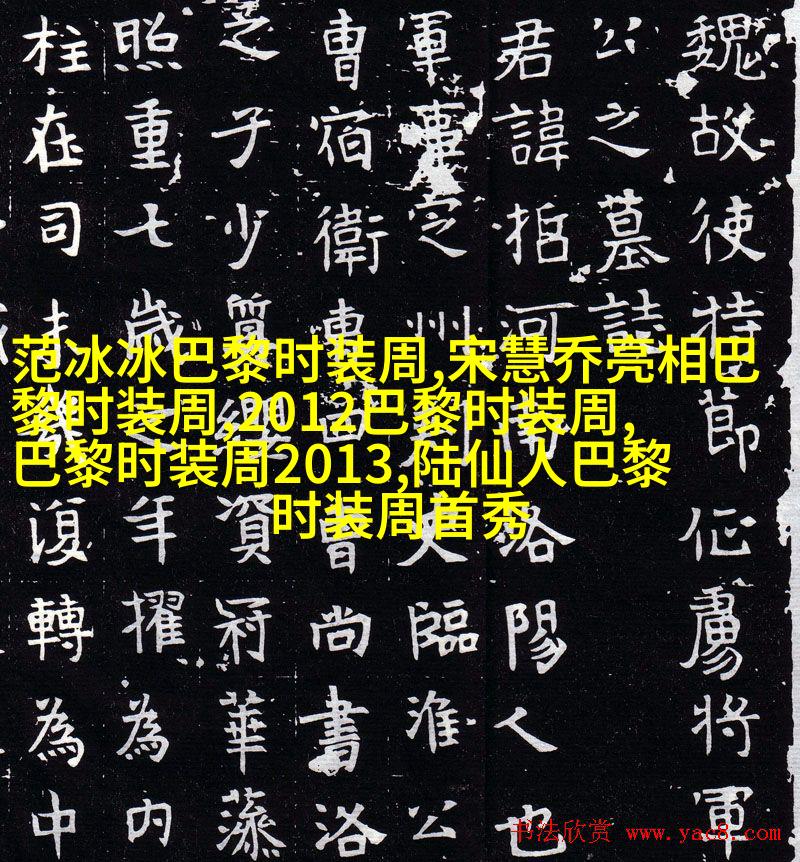 范冰冰巴黎时装周,宋慧乔亮相巴
黎时装周,2012巴黎时装周,
巴黎时装周2013,陆仙人巴黎
时装周首秀
魏故使持節征虜將軍
公之墓誌
君諱河南洛陽人也
軍事定州刺史臨淮公
曹宿衛曹尚書洛
之子少質資冠華藻
照重七歲之年擢為内
柱在司復轉為中
书法欣赏 www.yac8.com